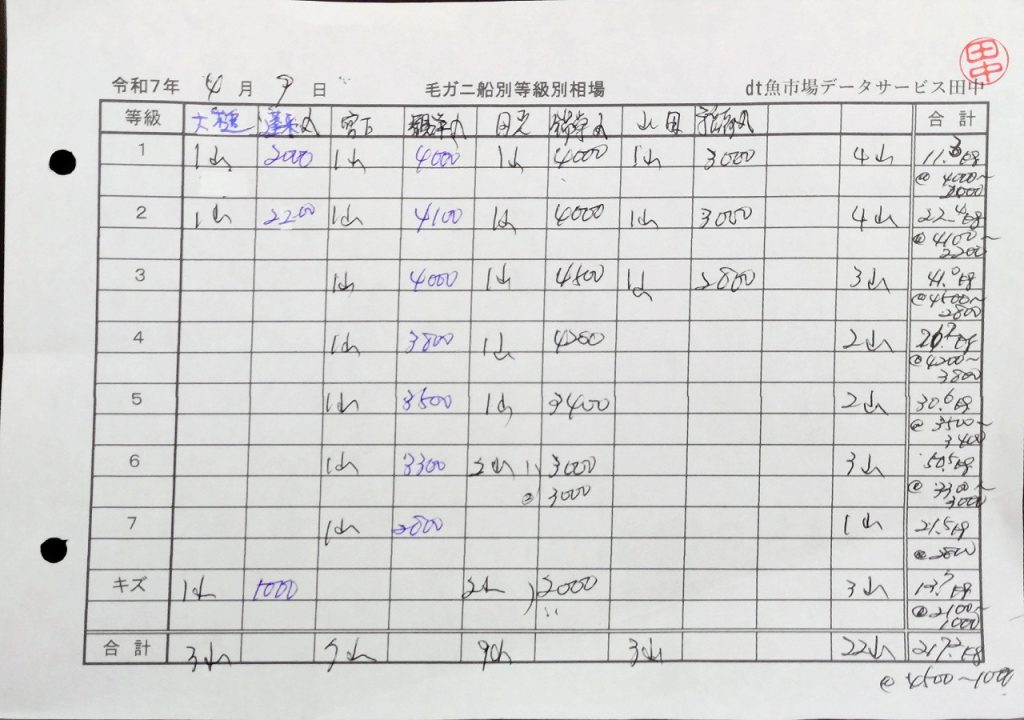 令和7年 4月 9日 毛ガニ船別等級別相場 dt魚市場データサービス田中
田中
等級 蓬来丸 宮下 日光 山田 合計
1 1山 2000 1山 4000 1山 4000 1山 3000 4山 11.3kg
@ 4000~
2000
2 1山 2200 1山 4100 1山 4000 1山 3000 4山 22.4kg
@ 4100~
2200
3 1山 4000 1山 4500 1山 2800 3山 41.0kg
@4500~
2800
4 1山 3800 1山 4200 2山 26.2kg
@4200~
3800
5 1山 3500 1山 3400 2山 30.6kg
@ 3500~
3400
6 1山 3300 2山 3000 3山 50.5kg
@ 3000 @ 3300~
3000
7 1山 2800 1山 21.5kg
@2800
キズ 1山 1000 2山 2000 3山 13.7kg
@2100~
1000
合計 3山 7山 9山 3山 22山 217.2kg
@ 4500~1000